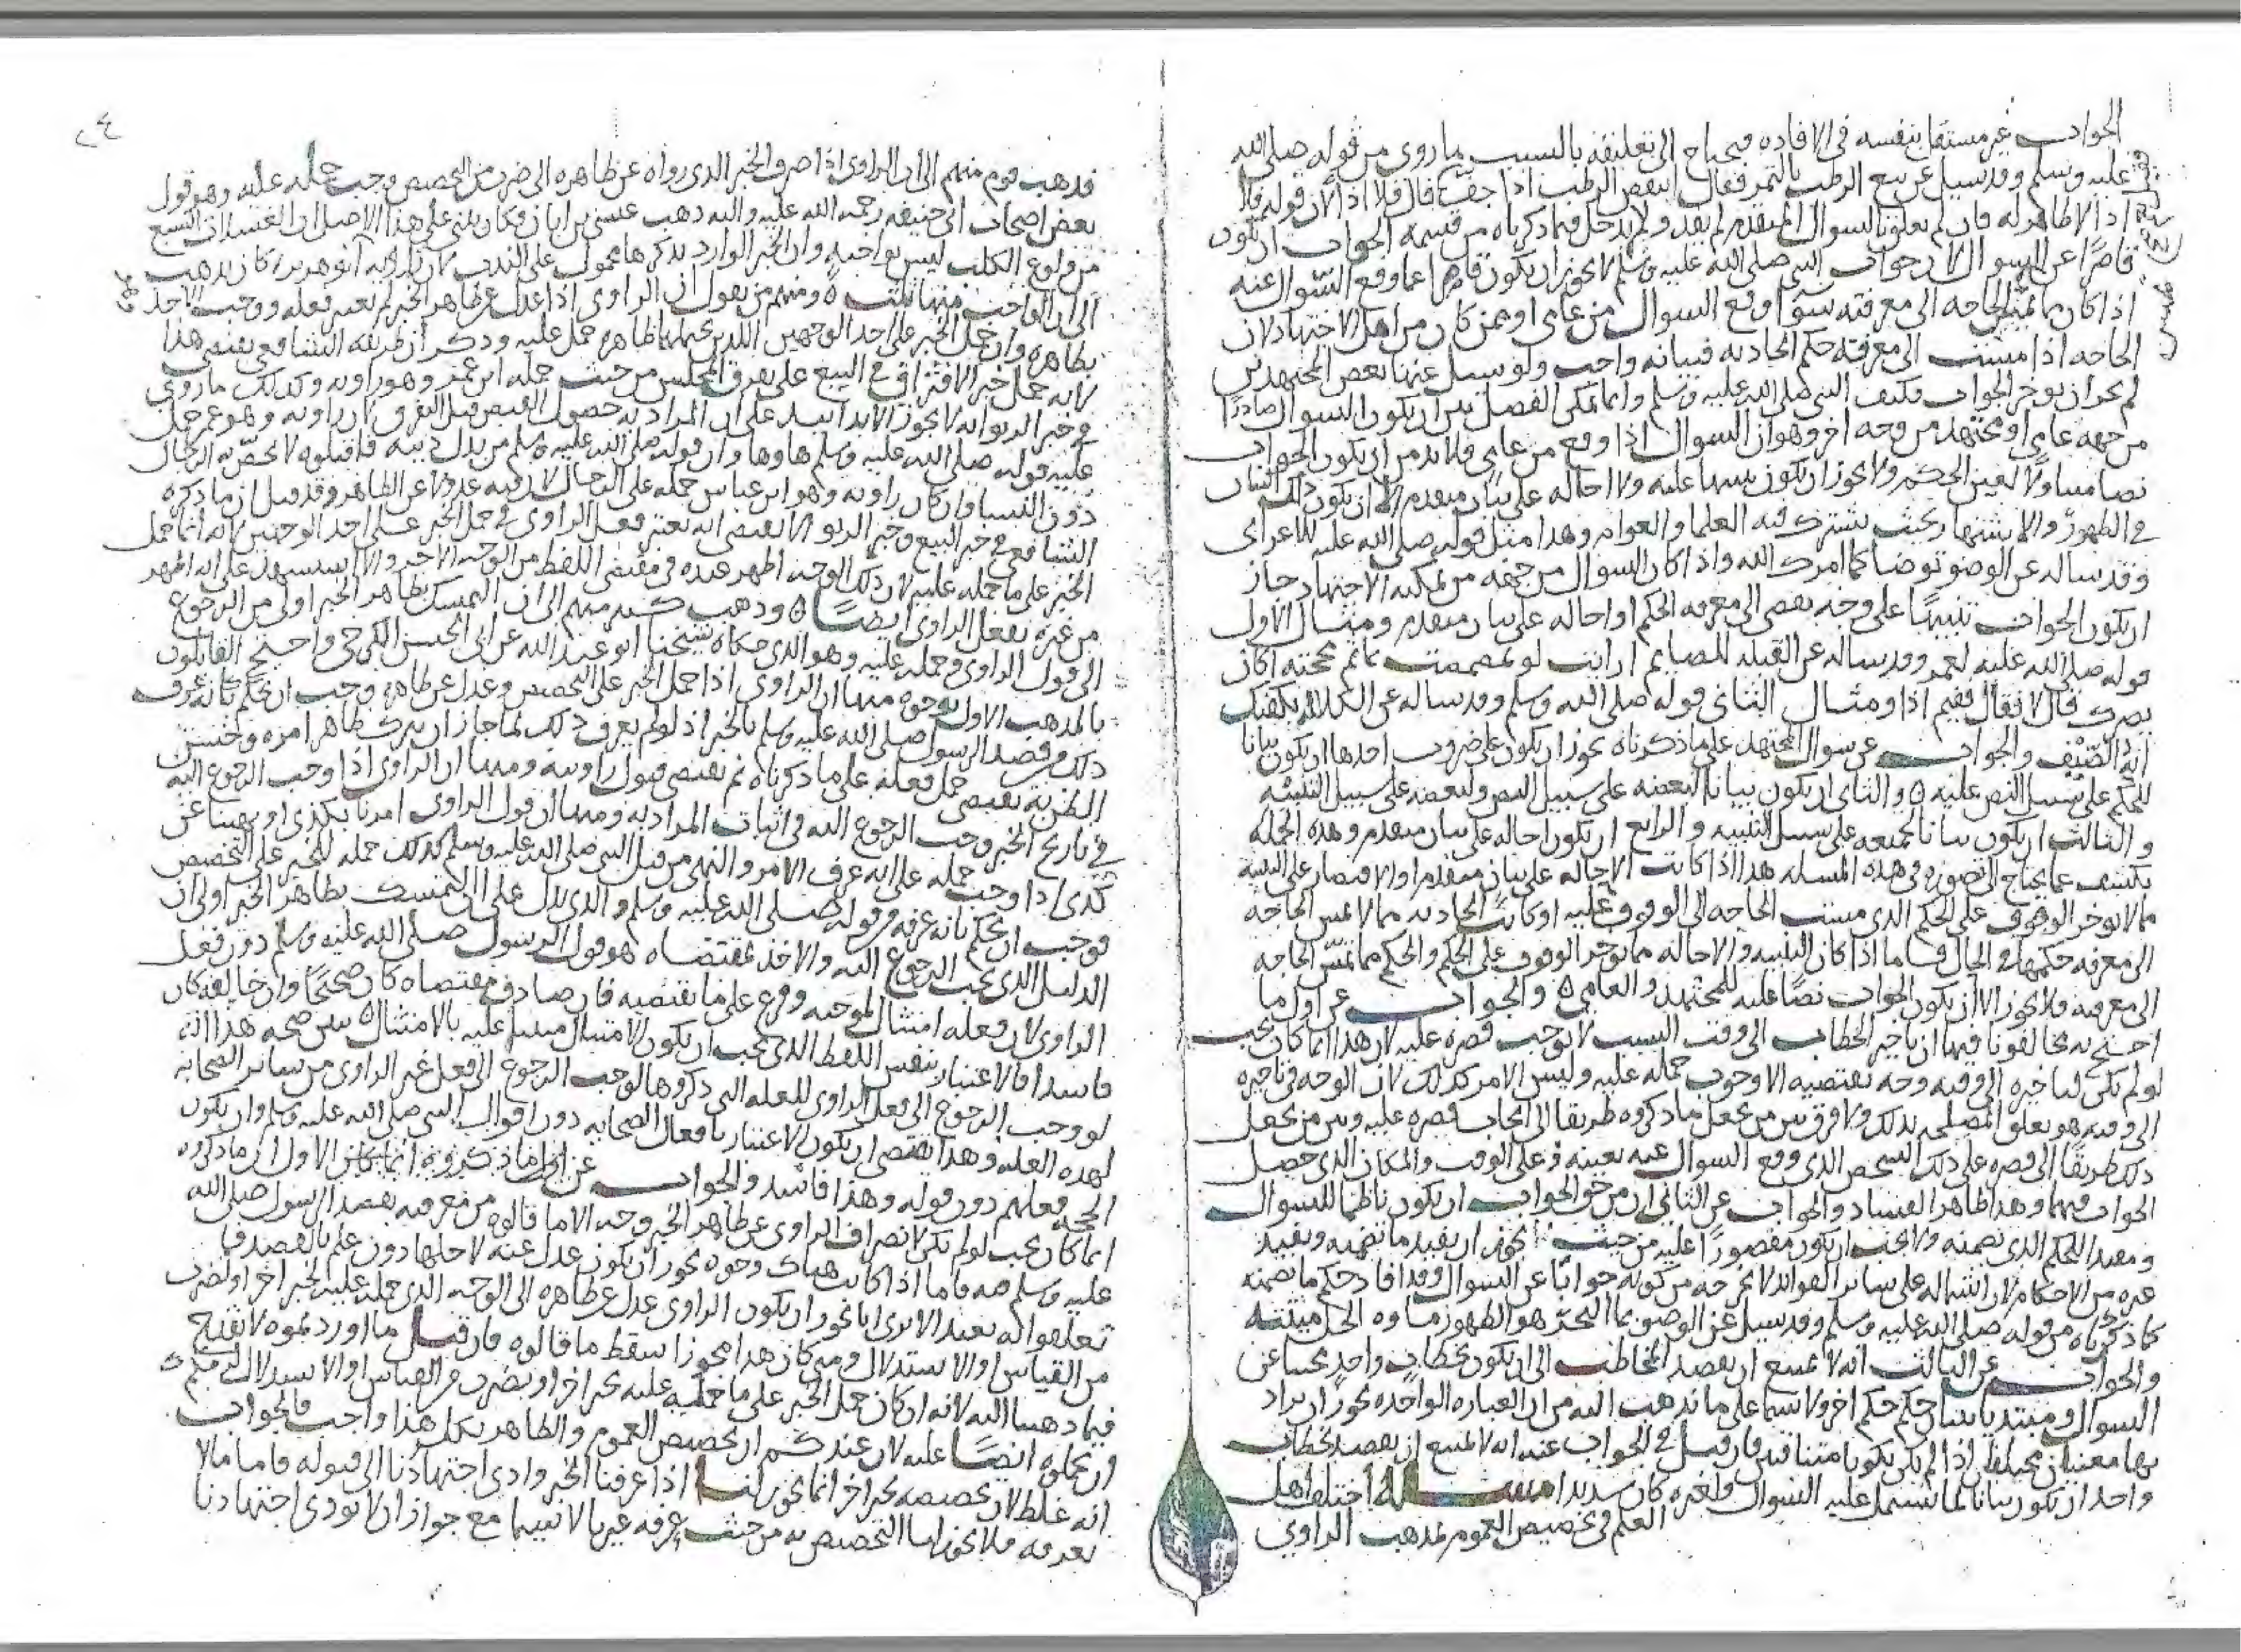 الجواب غير مستقل بنفسه في الافاده فيحتاج الى تعليقه بالسبب ما روى من قوله صلى الله
عليه وسلم وقد سيل عن بيع الرطب بالتمر فقال اينقص الرطب اذا جف قال فلا اذا لان قوله فلا
اذا لا ظاهر له فان لم يعلق بالسوال المتقدم لم يفد ولم يدخل فيما ذكرناه من قسمه الجواب ان يكون
قاصرا عن السوال لان جواب النبي صلى الله عليه وسلم لا يجوز ان يكون قاصرا عما وقع السوال عنه
اذا كان مما تمس الحاجه الى معرفته سوا وقع السوال من عامي او ممن كان من اهل الاجتهاد لان
الحاجه اذا مست الى معرفة حكم الحادثه فبيانه واجب ولو سيل عنها بعض المجتهدين
لم يجز ان يوخر الجواب فكيف النبي صلى الله عليه وسلم وانما يمكن الفصل بين ان يكون السوال صادرا
من جهه عامي او مجتهد من وجه اخر وهو ان السوال اذا وقع من عامي فلا بد من ان يكون الجواب
نصا مبينا لعين الحكم ولا يجوز ان يكون تنبيها عليه ولا احاله على بيان متقدم الا ان يكون ذلك البيان
في الظهور والاشتهار بحيث يشترك فيه العلما والعوام وهذا مثل قوله صلى الله عليه للاعرابي
وقد ساله عن الوضو توضا كما امرك الله واذا كان السوال من جهة من يمكنه الاجتهاد جاز
ان يكون الجواب تنبيها على وجه يفضي الى معرفه الحكم او احاله على بيان متقدم ومثال الاول
قوله صلى الله عليه لعمر وقد ساله عن القبله للصايم ارايت لو تمضمضت بما ثم مججته اكان
يضرك قال لا فقال ففيم اذا ومثال الثاني قوله صلى الله وسلم وقد ساله عن الكلاله يكفيك
ايه الصيف والجواب عن سوال المجتهد على ما ذكرناه يجوز ان يكون على ضروب احدها ان يكون بيانا
للحكم على سبيل النص عليه والثاني ان يكون بيانا لبعضه على سبيل النص ولبعضه على سبيل التنبيه
والثالث ان يكون بيانا لجميعه على سبيل التنبيه والرابع ان يكون احاله على بيان متقدم وهذه الجمله
يكشف عما يحتاج الى تصوره في هذه المسله هذا اذا كانت الاحاله على بيان متقدم او الاقتصار على التنبيه
مما لا يوخر الوقوف على الحكم الذي مست الحاجه الى الوقوف عليه او كانت الحادثه مما لا تمس الحاجه
الى معرفه حكمها في الحال فاما اذا كان التنبيه والاحاله مما يوخر الوقوف على الحكم والحكم مما تمس الحاجه
الى معرفته فلا يجوز الا ان يكون الجواب نصا عليه للمجتهد والعامي والجواب عن اول ما
احتج به مخالفونا فيها ان تاخير الخطاب الى وقت السبب لا يوجب قصره عليه لان هذا انما كان يجب
لو لم يكن لتاخيره الى وقته وجه يقتضيه الا وجوب حمله عليه وليس الامر كذلك لان الوجه في تاخيره
الى وقته هو تعلق المصلحه بذلك ولا فرق بين من يجعل ما ذكروه طريقا الى ايجاب قصره عليه وبين من يجعل
ذلك طريقا الى قصره على ذلك الشخص الذي وقع السوال عنه بعينه وعلى الوقت والمكان الذي حصل
الجواب فيهما وهذا ظاهر الفساد والجواب عن الثاني ان من حق الجواب ان يكون ناظما للسوال
ومفيدا للحكم الذي تضمنه ولا يجب ان يكون مقصورا عليه من حيث يجوز ان يفيد ما تضمنه ويفيد
غيره من الاحكام لان اشتماله على ساير الفوايد لا يخرجه من كونه جوابا عن السوال وقد افاد حكم ما تضمنه
كما ذكرناه من قوله صلى الله عليه وسلم وقد سيل عن الوضو بما البحر هو الطهور ماوه الحل ميتته
والجواب عن الثالث انه لا يمتنع ان يقصد المخاطب الى ان يكون بخطاب واحد مجيبا عن
السوال ومبتديا ببيان حكم اخر ولا سيما على ما نذهب اليه من ان العباره الواحده يجوز ان يراد
بها معنيان مختلفان اذا لم يكن يكونا متنافيين فان قيل في الجواب عنه انه لا يمتنع ان يقصد بخطاب
واحد ان يكون بيانا لما يشتمل عليه السوال ولغيره كان سديدا مسئله اختلف اهل
العلم في تخصيص العموم بمذهب الراوي
فذهب قوم منهم الى ان الراوي اذا صرف الخبر الذي رواه عن ظاهره الى ضرب من التخصيص وجب حمله عليه وهو قول
بعض اصحاب ابي حنيفه رحمه الله عليه واليه ذهب عيسى بن ابان وكان يبني على هذا الاصل ان الغسلات السبع
من ولوغ الكلب ليس بواجبه وان الخبر الوارد بذكرها محمول على الندب لان راويه ابو هريره كان يذهب
الى ان الواجب منها ثلث ومنهم من يقول ان الراوي اذا عدل عن ظاهر الخبر لم يعتبر فعله ووجب الاخذ
بظاهره وان حمل الخبر على احد الوجهين اللذين يحتملهما ظاهره حمل عليه وذكر ان طريقه الشافعي يقتضي هذا
لانه حمل خبر الافتراق في البيع على تفرق المجلس من حيث حمله ابن عمر وهو راويه وكذلك ما روى
في خبر الربوا انه لا يجوز الا يدا بيد على ان المراد به حصول القبض قبل التفرق لان راويه وهو عمر حمل
عليه قوله صلى الله عليه وسلم ها وها وان قوله صلى الله عليه وسلم من بدل دينه فاقتلوه لا يختص به الرجال
دون النسا وان كان راويه وهو ابن عباس حمله على الرجال لان فيه عدولا عن الظاهر وقد قيل ان ما ذكره
الشافعي في خبر البيع وخبر الربو لا يقتضي انه يعتبر فعل الراوي في حمل الخبر على احد الوجهين لانه انما حمل
الخبر على ما حمله عليه لان ذلك الوجه اظهر عنده في مقتضى اللفظ من الوجه الاخر والا يستشهد على انه اظهر
من غيره بفعل الراوي ايضا وذهب كثير منهم الى ان التمسك بظاهر الخبر اولى من الرجوع
الى قول الراوي وحمله عليه وهو الذي حكاه شيخنا ابو عبد الله عن ابي الحسن الكرخي واحتج القايلون
بالمذهب الاول بوجوه منها ان الراوي اذا حمل الخبر على التخصيص وعدل عن ظاهره وجب ان نحكم بانه عرف
ذلك من قصد الرسول صلى الله عليه وسلم بالخبر اذ لو لم يعرف ذلك لما جاز ان يترك ظاهر امره وحسن
الظن به يقتضي حمل فعله على ما ذكرناه ثم يقتضي قبول راويته ومنها ان الراوي اذا وجب الرجوع اليه
في تاريخ الخبر وجب الرجوع اليه في اثبات المراد به ومنها ان قول الراوي امرنا بكذى او نهينا عن
كذى اذا وجب حمله على انه عرف الامر والنهي من قبل النبي صلى الله عليه وسلم كذلك حمله الخبر على التخصيص
فوجب ان نحكم بانه عرفه من قوله صلى الله عليه وسلم والذي يدل على ان التمسك بظاهر الخبر اولى ان
الدليل الذي يجب الرجوع اليه والاخذ بمقتضاه هو قول الرسول صلى الله عليه وسلم دون فعل
الراوي لان فعله امتثال لموجبه وفرع على ما يقتضيه فان صادف مقتضاه كان صحيحا وان خالفه كان
فاسدا فالاعتبار بنفس اللفظ الذي يجب ان يكون الامتثال مبنيا عليه بالامتثال يبين صحه هذا انه
لو وجب الرجوع الى فعل الراوي للعله التي ذكروها لوجب الرجوع الى فعل غير الراوي من ساير الصحابه
لهذه العله وهذا يقتضي ان يكون الاعتبار بافعال الصحابه دون اقوال النبي صلى الله عليه وسلم وان يكون
الحجه فعلهم دون قوله وهذا فاسد والجواب عن الاول ان ما ذكروه
انما كان يجب لو لم يكن لانصراف الراوي عن ظاهر الخبر وجه الا ما قالوه من معرفته بقصد الرسول صلى الله
عليه وسلم فيه فاما اذا كانت هناك وجوه يجوز ان يكون عدل عنه لاجلها دون علم بالقصد فما
تعلقوا به بعيد الا ترى انا نجوز ان يكون الراوي عدل عن ظاهره الى الوجه الذي حمله عليه لخبر اخر او لضرب
من القياس او الاستدلال ومتى كان هذا مجوزا سقط ما قالوه فان قيل ما اوردتموه لا يقدح
فيما ذهبنا اليه لانه ان كان حمل الخبر على ما حمله عليه بخبر اخر او بضرب من القياس او الاستدلال لزمكم
ان تحملوه ايضا عليه لان عندكم ان تخصيص العموم والظاهر بكل هذا واجب فالجواب
انه غلط لان تخصيصه بخبر اخر انما يجوز لنا اذا عرفنا الخبر وادى اجتهادنا الى قبوله فاما ما لا
نعرفه فلا يجوز لنا التخصيص به من حيث عرفه غيرنا لا سيما مع جواز ان لا يودى اجتهادنا